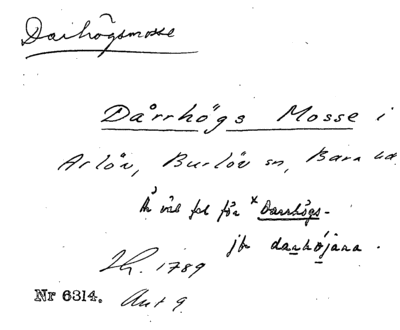 Darhögsmosse
Dårrhögs Mosse i
Arlöv, Burlöv sn, Bara hd
Å väl fel för *Darrhögs-
jfr darhöjana.
Lh. 1789
Nr 6314. Ant 9.